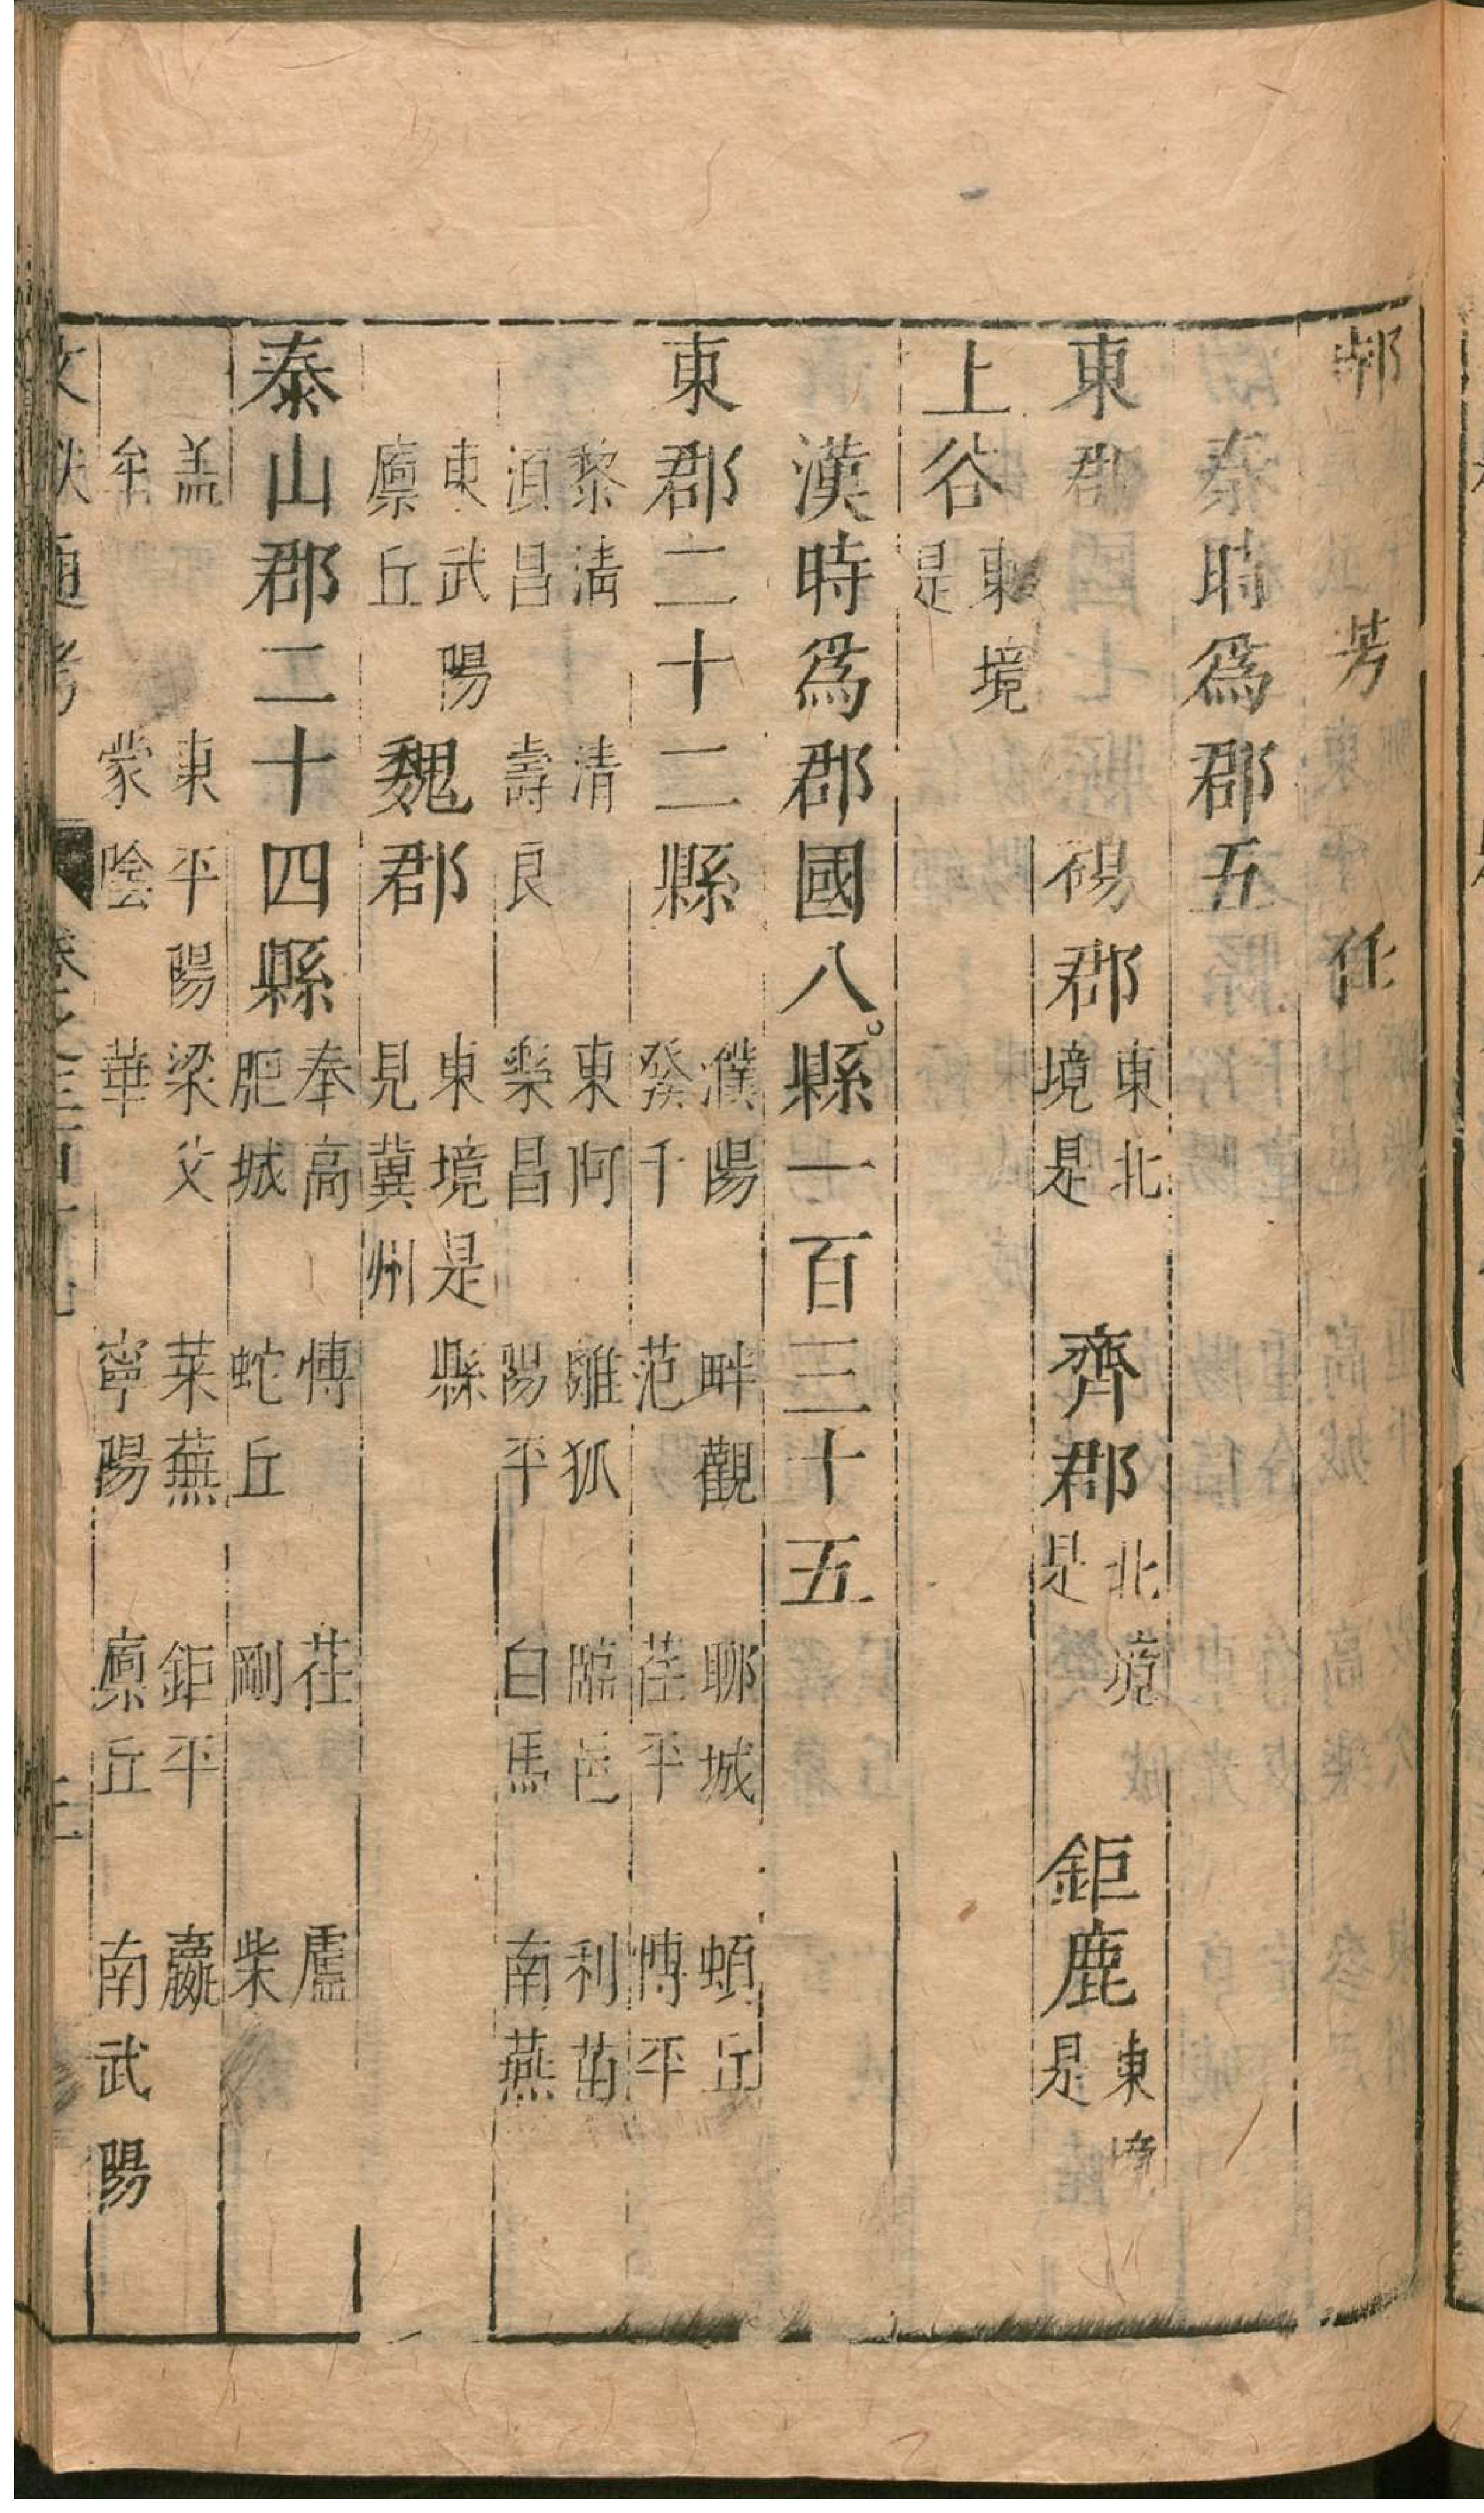 邿 芳 任
秦時爲郡五
東郡 碭郡東北境是 齊郡北境是 鉅鹿東境是
上谷東境是
漢時爲郡國八縣一百三十五
東郡二十二縣 濮陽 畔觀 聊城 頓丘 發千 范 茬平 博平
黎淸 清 東阿 離狐 臨邑 利苗 須昌 壽良 樂昌 陽平 白馬 南燕
東武陽 廩丘 魏郡東境是縣見冀州
泰山郡二十四縣 奉高 博 茬 盧 肥城 蛇丘 剛 柴
盖 東平陽 梁父 萊蕪 鉅平 嬴 牟 蒙陰 華 寧陽 㐭丘 南武陽